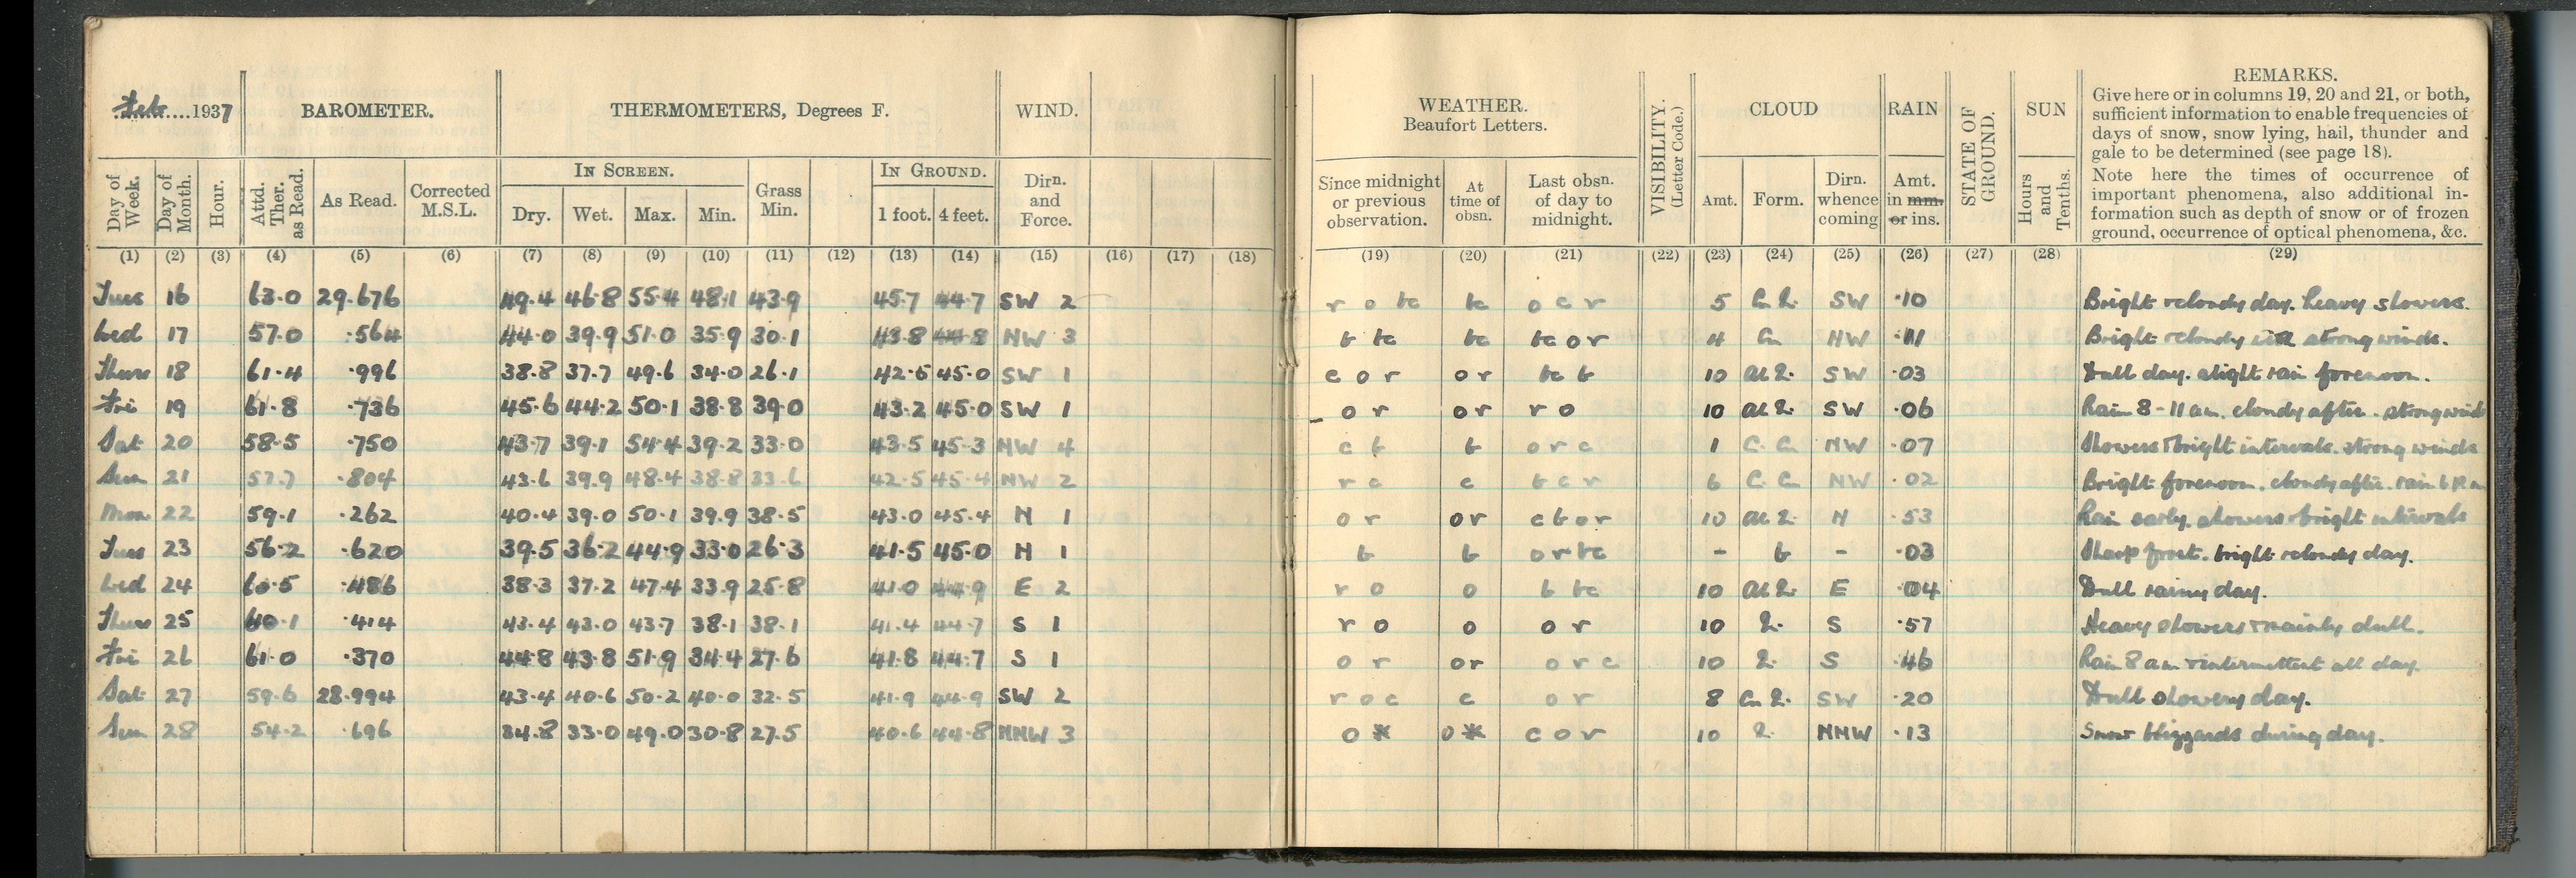 Feb....1937 BAROMETER. THERMOMETERS, Degrees F. WIND. WEATHER. Beaufort Letters. VISIBILITY. (Letter Code.) CLOUD RAIN STATE OF GROUND. SUN REMARKS.
Give here or in columns 19, 20 and 21, or both,
sufficient information to enable frequencies of
days of snow, snow lying, hail, thunder and
gale to be determined (see page 18).
Note here the times of occurrence of
important phenomena, also additional in-
formation such as depth of snow or of frozen
ground, occurrence of optical phenomena, &c.
Day of Week. Day of Month. Hour. Attd. Ther. as Read. As Read. Corrected M.S.L. IN SCREEN. Dry. Wet. Max. Min. Grass Min. IN GROUND. 1 foot. 4 feet. Dirn. and Force. Since midnight or previous observation. At time of obsn. Last obsn. of day to midnight. Amt. Form. Dirn. whence coming Amt. in mm. or ins. Hours and Tenths.
(1) (2) (3) (4) (5) (6) (7) (8) (9) (10) (11) (12) (13) (14) (15) (16) (17) (18) (19) (20) (21) (22) (23) (24) (25) (26) (27) (28) (29)
Tues 16 63.0 29.676 49.4 46.8 55.4 48.1 43.9 45.7 44.7 SW 2 r o bc bc o c r 5 SW .10 Bright & cloudy day. heavy showers.
Wed 17 57.0 .564 44.0 39.9 51.0 35.9 30.1 43.8 44.8 NW 3 b bc bc bc o r 4 Cu NW .11 Bright & cloudy with strong winds.
Thurs 18 61.4 .996 38.8 37.7 49.6 34.0 26.1 42.5 45.0 SW 1 c o r o r bc b 10 SW .03 Dull day. slight rain forenoon.
Fri 19 61.8 .736 45.6 44.2 50.1 38.8 39.0 43.2 45.0 SW 1 o r o r r o 10 SW .06 Rain 8-11 am. cloudy after. strong wind
Sat 20 58.5 .750 43.7 39.1 54.4 39.2 33.0 43.5 45.3 NW 4 c b b o r c 1 C. Cu NW .07 Showers & bright intervals. strong winds
Sun 21 57.7 .804 43.6 39.9 48.4 38.8 33.6 42.5 45.4 NW 2 r c c b c r 6 C. Cu NW .02 Bright forenoon. cloudy after. rain 6
Mon 22 59.1 .262 40.4 39.0 50.1 39.9 38.5 43.0 45.4 N 1 o r o r c b o r 10 N .53 Rain early. showers & bright intervals
Tues 23 56.2 .620 39.5 36.2 44.9 33.0 26.3 41.5 45.0 N 1 b b o r bc - b - .03 Sharp frost. bright & cloudy day.
Wed 24 60.5 .486 38.3 37.2 47.4 33.9 25.8 41.0 44.9 E 2 r o o b bc 10 E .04 Dull rainy day.
Thurs 25 60.1 .414 43.4 43.0 43.7 38.1 38.1 41.4 44.7 S 1 r o o o r 10 S .57 Heavy showers & mainly dull.
Fri 26 61.0 .370 44.8 43.8 51.9 34.4 27.6 41.8 44.7 S 1 o r o r o r c 10 S .46 Rain 8 am & intermittent all day.
Sat 27 59.6 28.994 43.4 40.6 50.2 40.0 32.5 41.9 44.9 SW 2 r o c c o r 8 SW .20 Dull showery day.
Sun 28 54.2 .696 34.8 33.0 49.0 30.8 27.5 40.6 44.8 NNW 3 o * o * c o r 10 NNW .13 Snow blizzards during day.